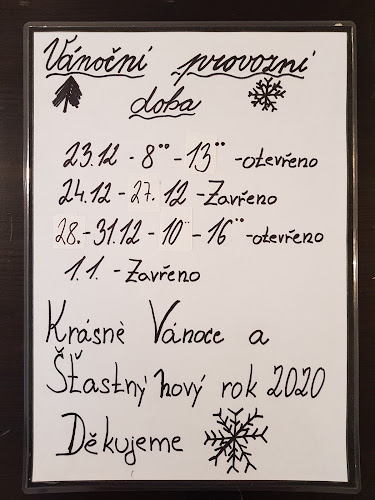 Vánoční provozní
doba
23.12 - 8°° - 13°° - otevřeno
24.12 - 27. 12 - Zavřeno
28. - 31.12 - 10°° - 16°° - otevřeno
1.1. - Zavřeno
Krásné Vánoce a
Šťastný nový rok 2020
Děkujeme